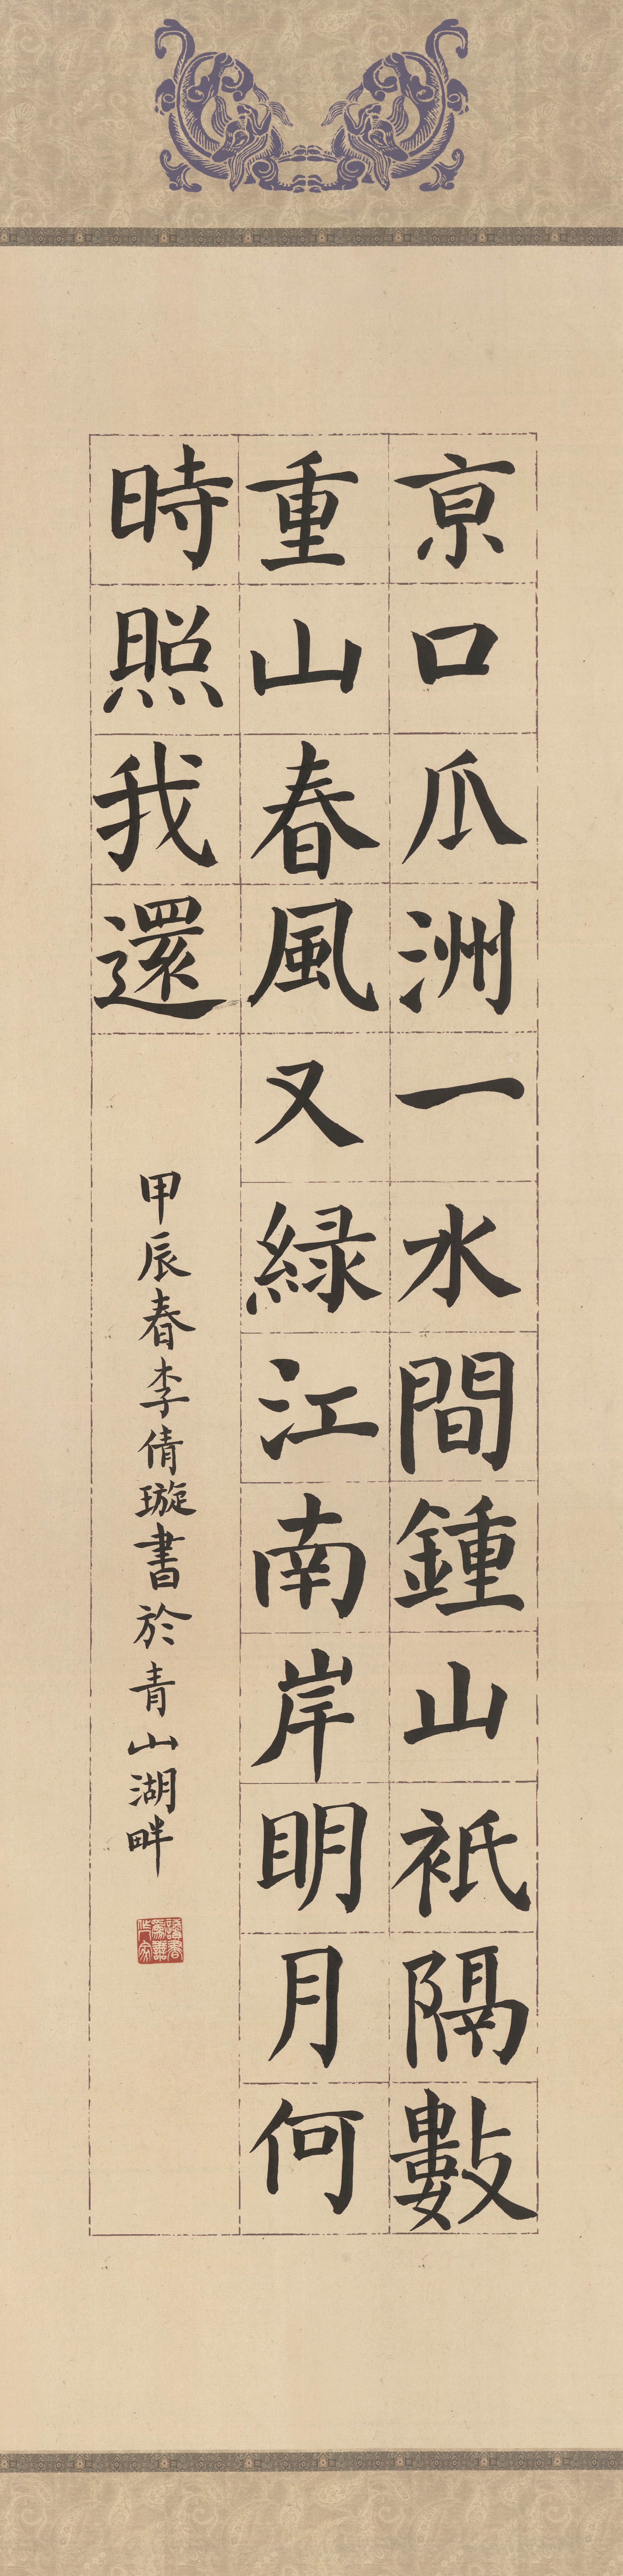 亰口瓜洲一水間鍾山衹隔數
重山春風又緑江南岸眀月何
時照我還
甲辰春李倩璇書於青山湖畔